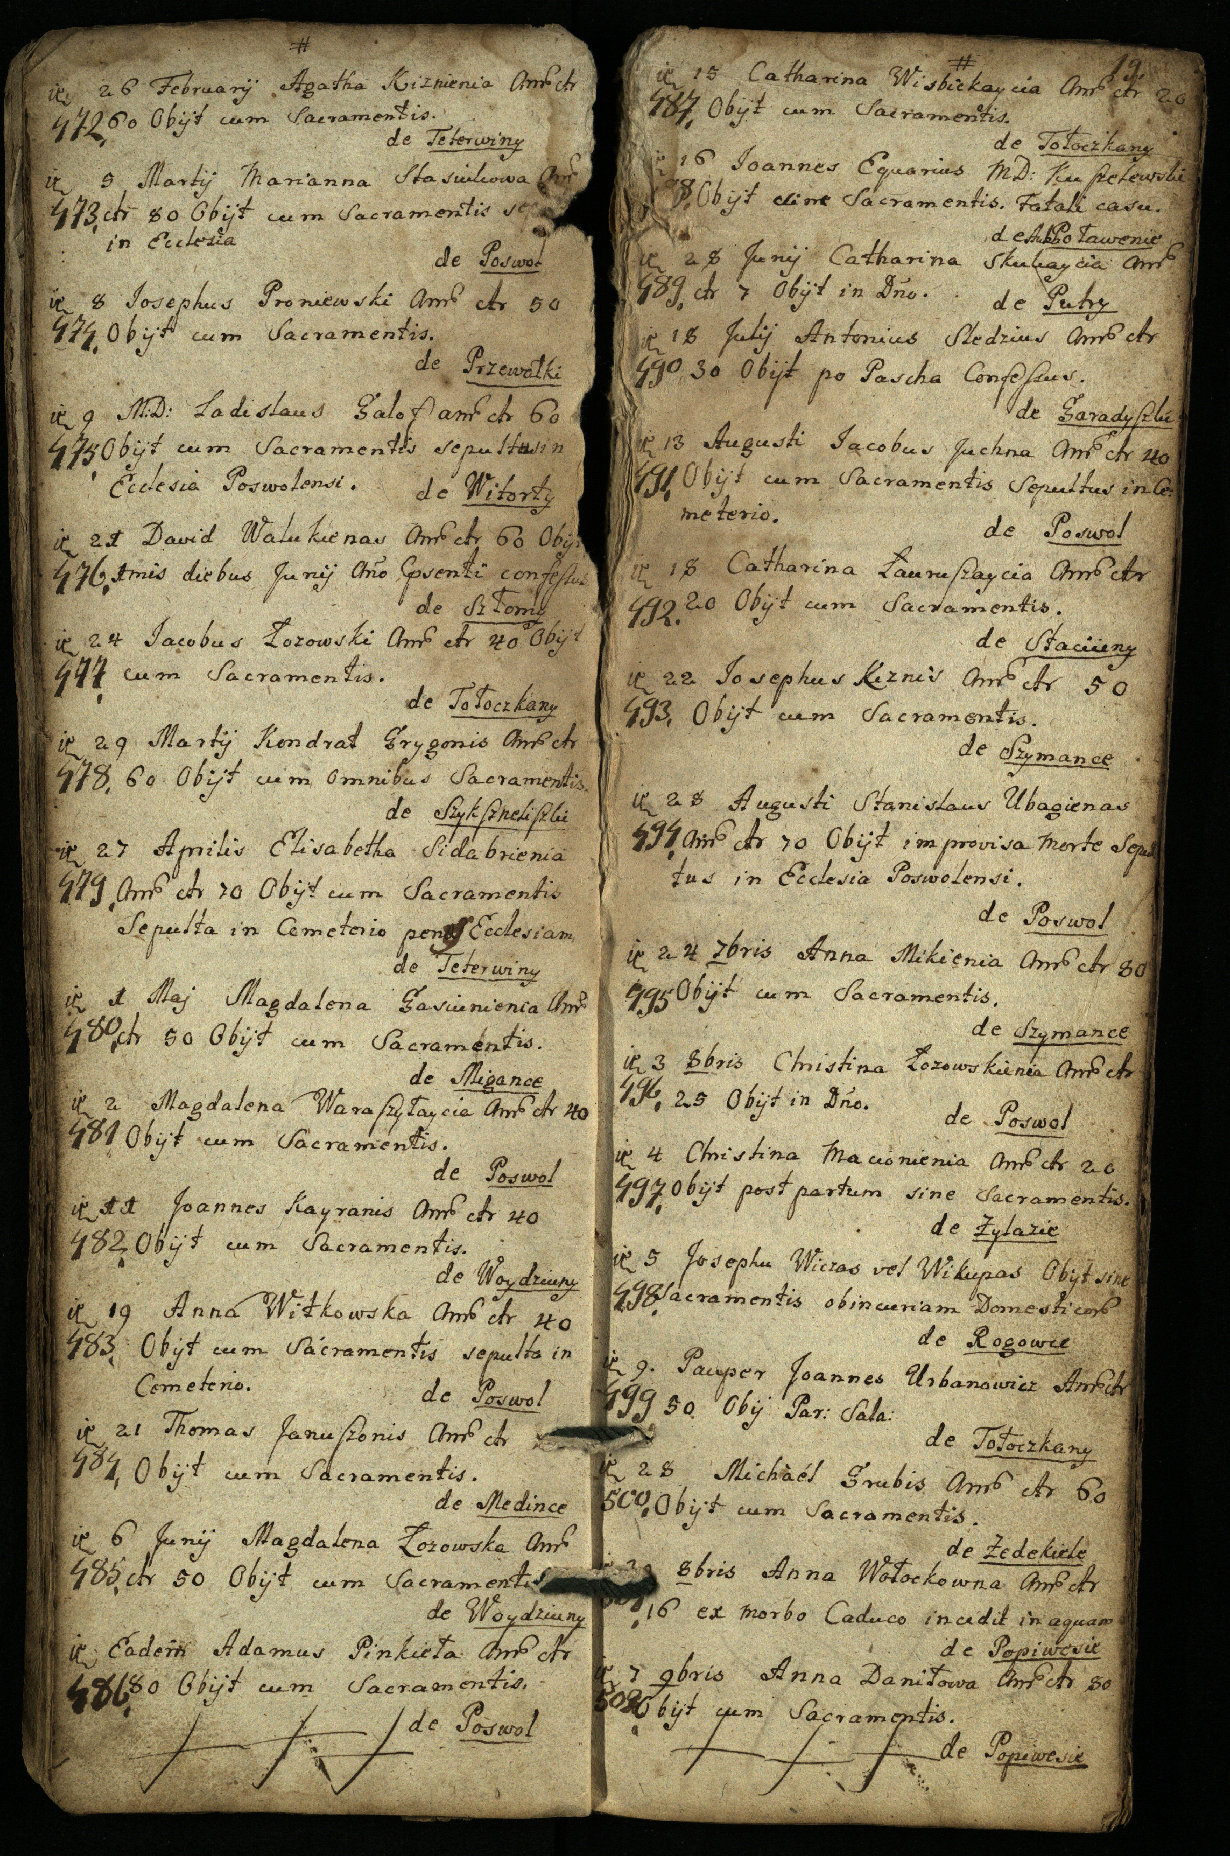 #
26 February Agatha Kiznienia Anno ctr
472. 60 Obijt cum Sacramentis.
de Teterwiny
5 Martij Marianna Stasiulowa
473. ctr 80 Obijt cum Sacramentis
in Ecclesia
de Poswol
8 Josephus Proniewski Anno ctr 50
474. Obijt cum Sacramentis.
de Przewalki
9 M:D: Ladislaus Galof anno ctr 60
475. Obijt cum Sacramentis sepultus in
Ecclesia Poswolensi.
de Witorty
21 David Walukienas Anno ctr 60
476. 1mis diebus Junij Anno confessus
de Szłomy
24 Jacobus Łozowski Anno ctr 40 Obijt
477. cum Sacramentis.
de Tołoczkany
29 Martij Kondrat Grygonis Anno ctr
478. 60 Obijt cum omnibus Sacramentis.
de
27 Aprilis Elisabetha Sidabrienia
479. Anno ctr 70 Obijt cum Sacramentis
Sepulta in Cemeterio penes Ecclesiam
de Teterwiny
1 Maj Magdalena Gasiunienia Anno
480. ctr 50 Obijt cum Sacramentis.
de Migance
2 Magdalena Waraszylaycia Anno ctr 40
481 Obijt cum Sacramentis.
de Poswol
11 Joannes Kayranis Anno ctr 40
482. Obijt cum Sacramentis.
de Woydziuny
19 Anna Witkowska Anno ctr 40
483. Obijt cum Sacramentis sepulta in
Cemeterio.
de Poswol
21 Thomas Januszonis Anno ctr
484. Obijt cum Sacramentis.
de Medince
6 Junij Magdalena Łozowska Anno
485. ctr 50 Obijt cum Sacramentis
de Woydziuny
Eadem Adamus Pinkieta Anno ctr
486. 80 Obijt cum Sacramentis.
de Poswol
#
19.
15 Catharina Wisbickaycia Anno ctr 20
487. Obijt cum Sacramentis.
de Tołoczkany
16 Joannes Equarius M:D:
Obijt sine Sacramentis. Fatali casu.
de
28 Junij Catharina Skulsaycia Anno
489. ctr 7 Obijt in Dno.
de Putry
18 Julij Antonius Sledzius Anno ctr
490 30 Obijt po Pascha Confessus.
de
13 Augusti Jacobus Juchna Anno ctr 40
491. Obijt cum Sacramentis Sepultus in Ce:
meterio.
de Poswol
18 Catharina Łauruszaycia Anno ctr
492. 20 Obijt cum Sacramentis.
de Staciuny
22 Josephus Kiznis Anno ctr 50
493. Obijt cum Sacramentis.
de Szymance
28 Augusti Stanislaus Ubagienas
494. Anno ctr 70 Obijt improvisa morte Sepul
tus in Ecclesia Poswolensi.
de Poswol
24 7bris Anna Mikienia Anno ctr 80
495 Obijt cum Sacramentis.
de Szymance
3 8bris Christina Łozowskienia Anno ctr
496. 25 Obijt in Dno.
de Poswol
4 Christina Macionienia Anno ctr 20
497. Obijt post partum sine Sacramentis.
de Zylazie
5 Josephu Wiczas vel Wikupas Obijt sine
498. Sacramentis ob incuriam Domesticorum
de Rogowie
9. Pauper Joannes Urbanowicz Anno ctr
499 50 Obij Par: Sala:
de Tołoczkany
28 Michaël Grubis Anno ctr 60
500. Obijt cum Sacramentis.
de Zedekiele
8bris Anna Wołockowna Anno ctr
16 ex morbo Caduco incidit in aquam
de Popiwesie
7 9bris Anna Daniłowa Anno ctr 80
502. Obijt cum Sacramentis.
de Popiwesie